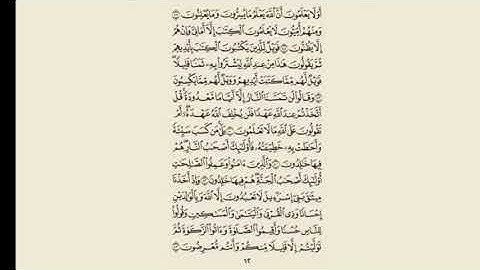 أَوَلَا يَعْلَمُونَ أَنَّ ٱللَّهَ يَعْلَمُ مَا يُسِرُّونَ وَمَا يُعْلِنُونَ ٧٧
وَمِنْهُمْ أُمِّيُّونَ لَا يَعْلَمُونَ ٱلْكِتَٰبَ إِلَّآ أَمَانِيَّ وَإِنْ هُمْ
إِلَّا يَظُنُّونَ ٧٨ فَوَيْلٌ لِّلَّذِينَ يَكْتُبُونَ ٱلْكِتَٰبَ بِأَيْدِيهِمْ
ثُمَّ يَقُولُونَ هَٰذَا مِنْ عِندِ ٱللَّهِ لِيَشْتَرُوا۟ بِهِۦ ثَمَنًا قَلِيلًا
فَوَيْلٌ لَّهُم مِّمَّا كَتَبَتْ أَيْدِيهِمْ وَوَيْلٌ لَّهُم مِّمَّا يَكْسِبُونَ
٧٩ وَقَالُوا۟ لَن تَمَسَّنَا ٱلنَّارُ إِلَّآ أَيَّامًا مَّعْدُودَةً قُلْ
أَتَّخَذْتُمْ عِندَ ٱللَّهِ عَهْدًا فَلَن يُخْلِفَ ٱللَّهُ عَهْدَهُۥٓ أَمْ
تَقُولُونَ عَلَى ٱللَّهِ مَا لَا تَعْلَمُونَ ٨٠ بَلَىٰ مَن كَسَبَ سَيِّئَةً
وَأَحَٰطَتْ بِهِۦ خَطِيٓـَٔتُهُۥ فَأُو۟لَٰٓئِكَ أَصْحَٰبُ ٱلنَّارِ هُمْ
فِيهَا خَٰلِدُونَ ٨١ وَٱلَّذِينَ ءَامَنُوا۟ وَعَمِلُوا۟ ٱلصَّٰلِحَٰتِ
أُو۟لَٰٓئِكَ أَصْحَٰبُ ٱلْجَنَّةِ هُمْ فِيهَا خَٰلِدُونَ ٨٢ وَإِذْ أَخَذْنَا
مِيثَٰقَ بَنِىٓ إِسْرَٰٓءِيلَ لَا تَعْبُدُونَ إِلَّا ٱللَّهَ وَبِٱلْوَٰلِدَيْنِ
إِحْسَانًا وَذِى ٱلْقُرْبَىٰ وَٱلْيَتَٰمَىٰ وَٱلْمَسَٰكِينِ وَقُولُوا۟
لِلنَّاسِ حُسْنًا وَأَقِيمُوا۟ ٱلصَّلَوٰةَ وَءَاتُوا۟ ٱلزَّكَوٰةَ ثُمَّ
تَوَلَّيْتُمْ إِلَّا قَلِيلًا مِّنكُمْ وَأَنتُم مُّعْرِضُونَ ٨٣
١٢